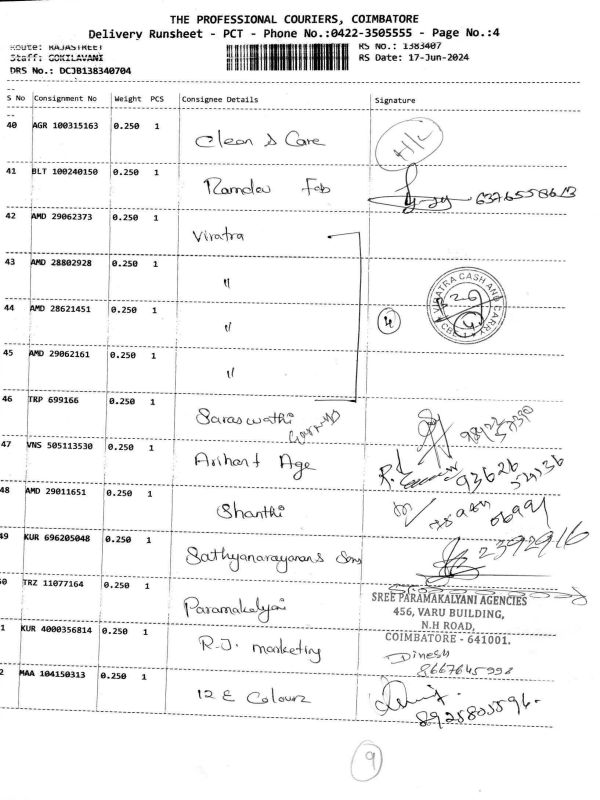 THE PROFESSIONAL COURIERS, COIMBATORE
Delivery Runsheet - PCT - Phone No.:0422-3505555 - Page No.:4
Route: RAJASTREET
RS No.: 1383407
Staff: GOKILAVANI
RS Date: 17-Jun-2024
DRS No.: DCJB138340704
S No Consignment No Weight PCS Consignee Details Signature
40 AGR 100315163 0.250 1 Clean & Care
41 BLT 100240150 0.250 1 Ramdev Fab 6376558613
42 AMD 29062373 0.250 1 Viratra
43 AMD 28802928 0.250 1 "
VIRATRA CASH AND CARRY
44 AMD 28621451 0.250 1 " 4
45 AMD 29062161 0.250 1 "
46 TRP 699166 0.250 1 Saraswathi
47 VNS 505113530 0.250 1 Arihant Age 93626
48 AMD 29011651 0.250 1 Shanthi
49 KUR 696205048 0.250 1 Sathyanarayanan & Sons 2392916
50 TRZ 11077164 0.250 1 Paramakalyani
SREE PARAMAKALYANI AGENCIES
456, VARU BUILDING,
N.H ROAD,
COIMBATORE - 641001.
1 KUR 4000356814 0.250 1 R.J. marketing
Dinesh
8667645998
2 MAA 104150313 0.250 1 12 E Colourz
8925805596.
9